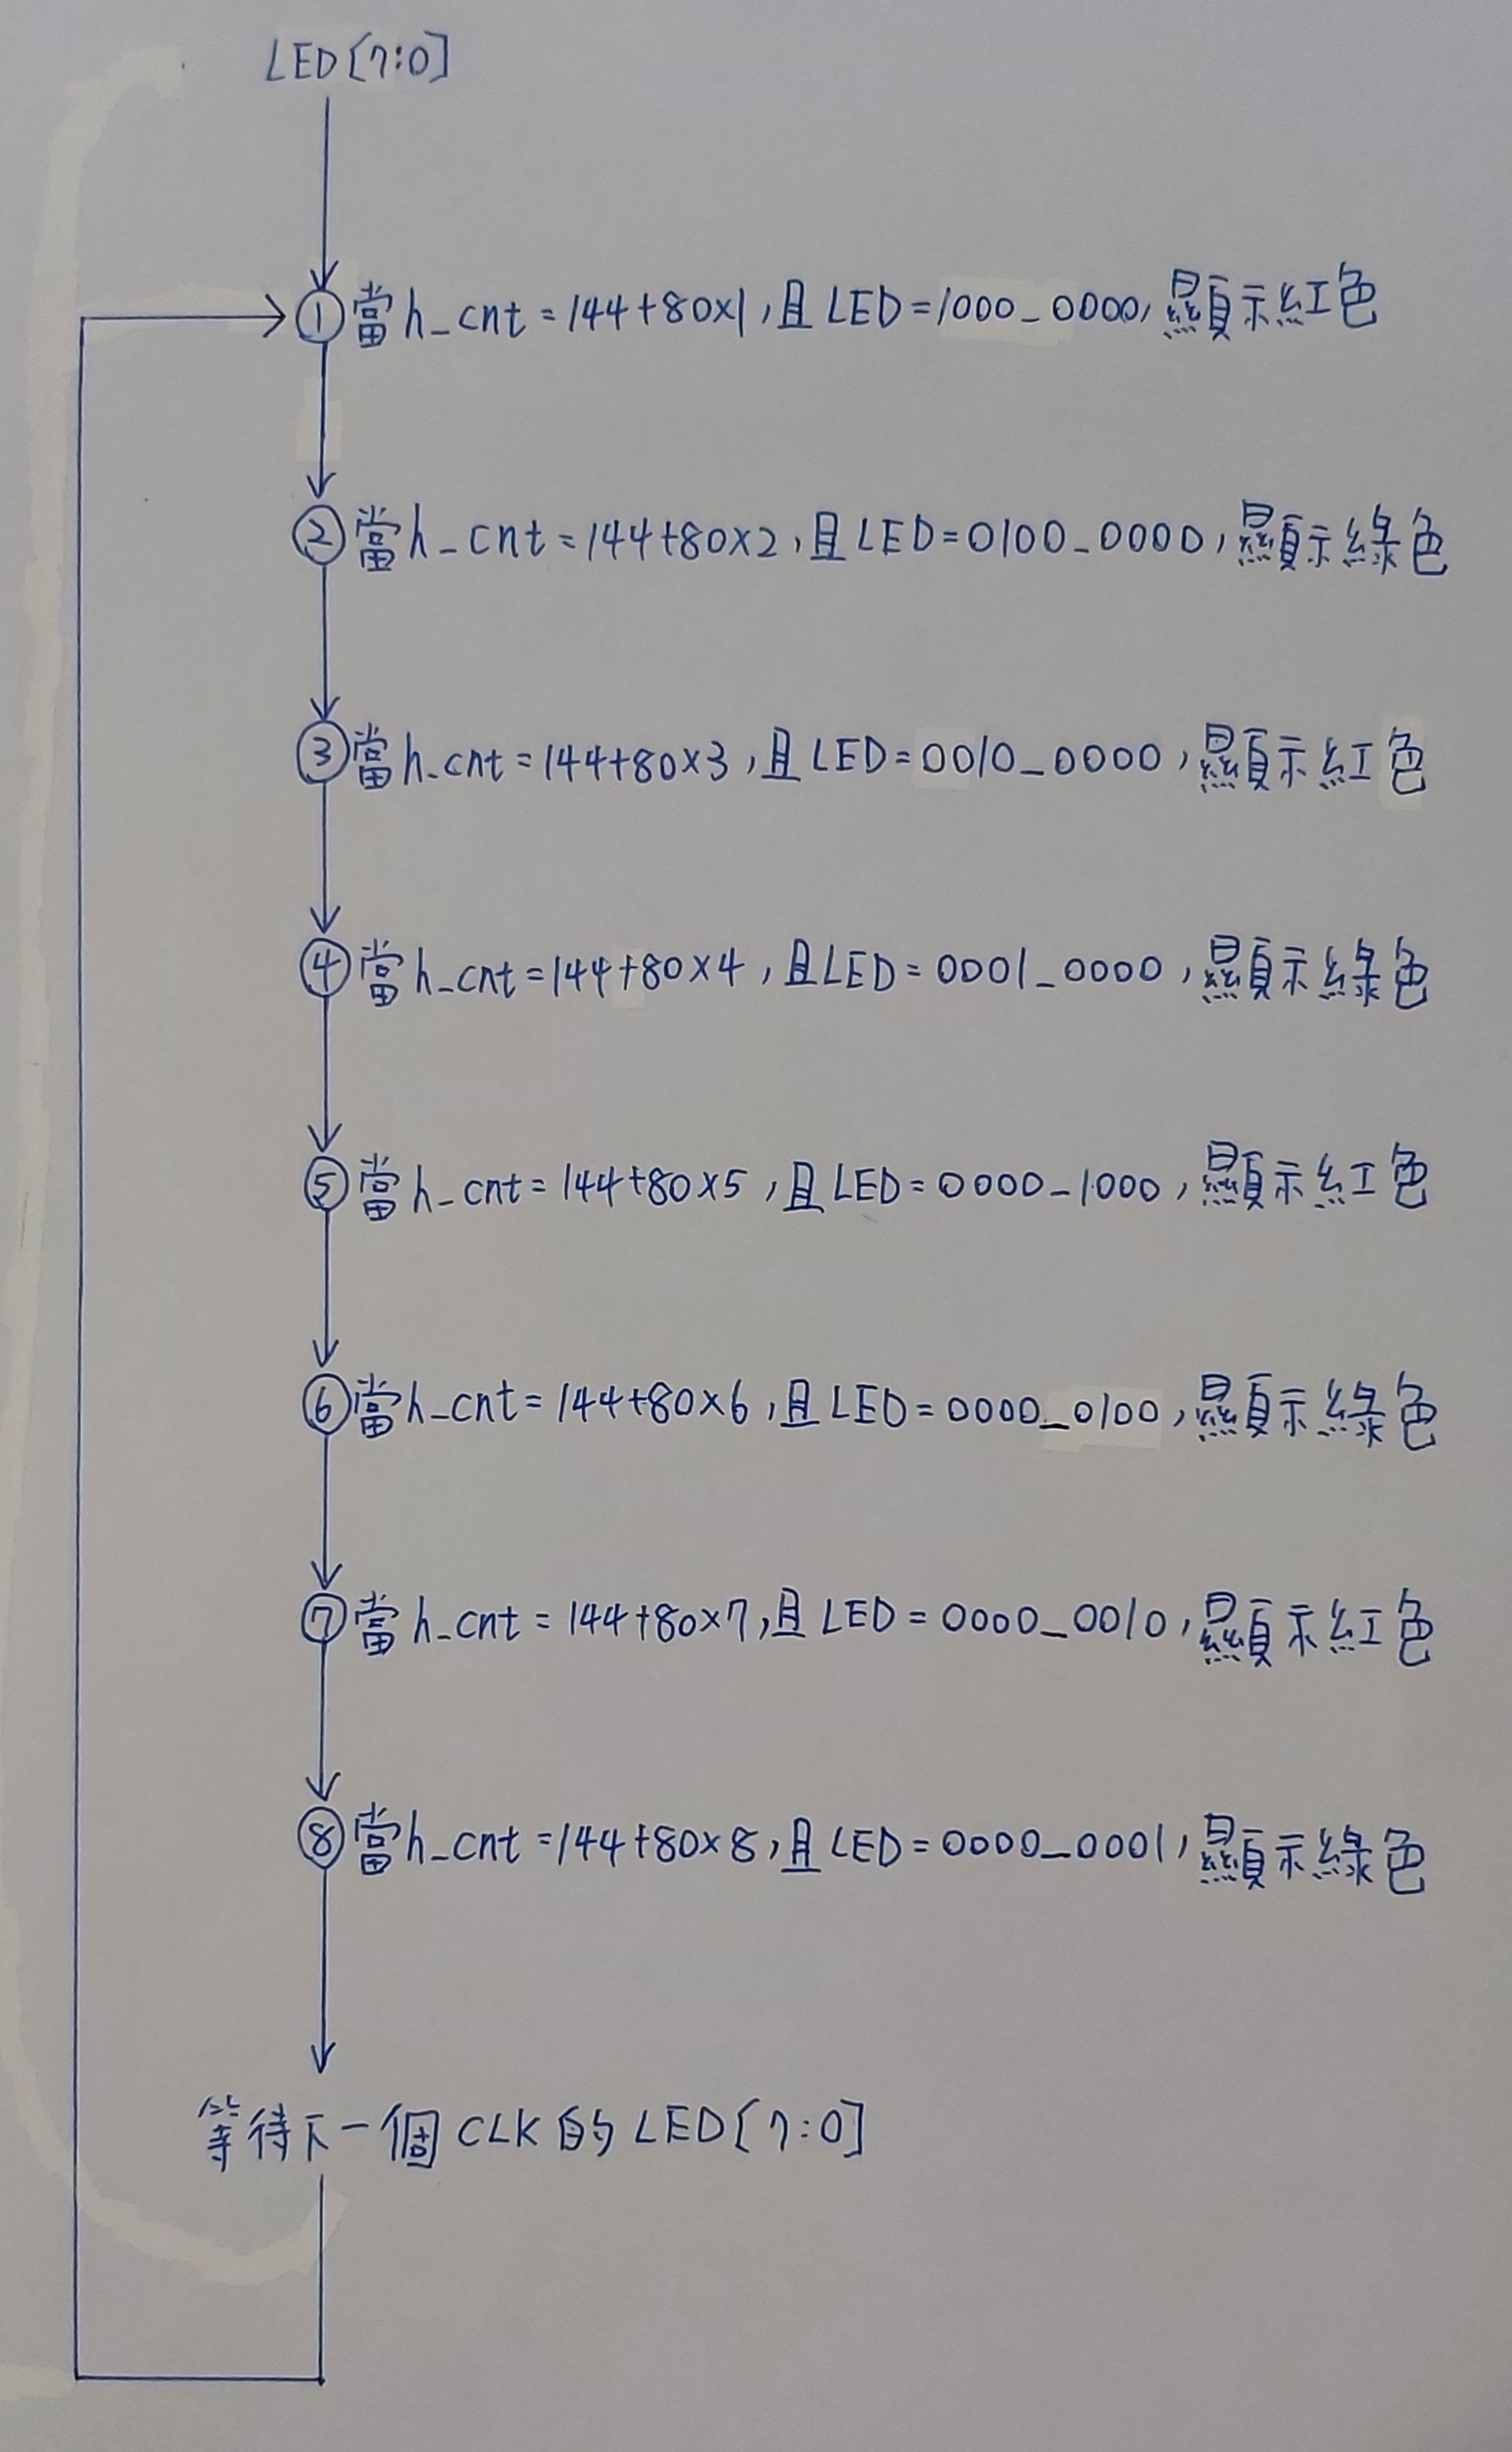 LED[7:0]
①當h_cnt=144+80×1,且LED=1000_0000,顯示紅色
②當h_cnt=144+80×2,且LED=0100_0000,顯示綠色
③當h_cnt=144+80×3,且LED=0010_0000,顯示紅色
④當h_cnt=144+80×4,且LED=0001_0000,顯示綠色
⑤當h_cnt=144+80×5,且LED=0000_1000,顯示紅色
⑥當h_cnt=144+80×6,且LED=0000_0100,顯示綠色
⑦當h_cnt=144+80×7,且LED=0000_0010,顯示紅色
⑧當h_cnt=144+80×8,且LED=0000_0001,顯示綠色
等待下一個CLK的LED[7:0]